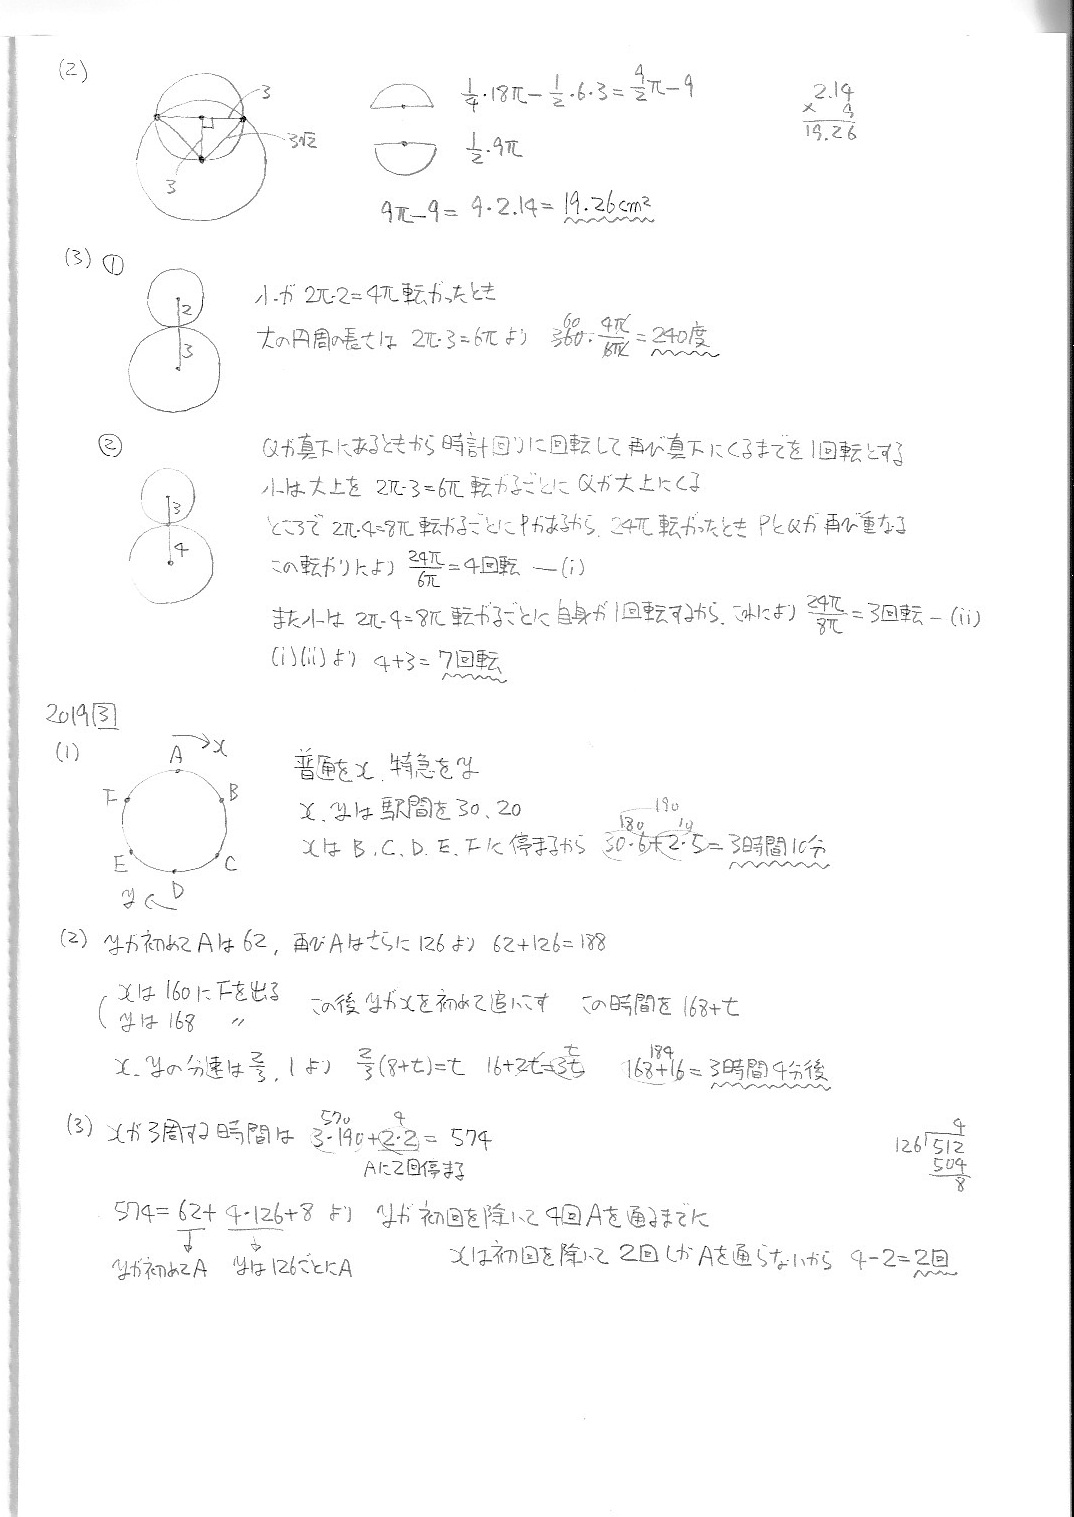 (2)
3
3√2
3
1/4・18π−1/2・6・3=9/2π−9
1/2・9π
9π−9=9・2.14=19.26cm²
2.14
× 9
19.26
(3) ①
2
3
小が 2π・2=4π転がったとき
大の円周の長さは 2π・3=6πより 360・4π/6π=240度
60
②
3
4
Qが真下にあるときから時計回りに回転して再び真下にくるまでを1回転とする
小は大上を 2π・3=6π 転がるごとに Qが大上にくる
ところで 2π・4=8π 転がるごとにPがあるから、24π転がったとき PとQが再び重なる
この転がりにより 24π/6π=4回転 ―(i)
また小は 2π・4=8π 転がるごとに自身が1回転するから、これにより 24π/8π=3回転―(ii)
(i)(ii)より 4+3=7回転
2019 3
(1)
A
x
B
C
D
E
F
y
普通をx、特急をy
x、yは駅間を30、20
xは B、C、D、E、Fに停まるから 30・6+2・5=3時間10分
180
10
190
(2) yが初めてAは62，再びAはさらに126より 62+126=188
xは160にFを出る
yは168 〃
この後yがxを初めて追いこす この時間を168+t
x、yの分速は2/3、1より 2/3(8+t)=t 16+2t=3t 168+16=3時間4分後
t
184
(3) xが3周する時間は 3・190+2・2=574
570
4
Aに2回停まる
574=62+4・126+8 より yが初回を除いて4回Aを通るまでに
yが初めてA yは126ごとにA
xは初回を除いて2回しかAを通らないから 4−2=2回
4
126)512
504
8